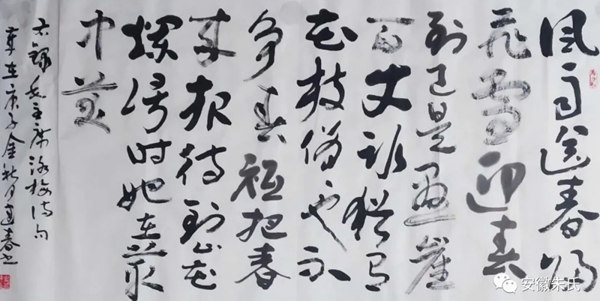 风雨送春归
飛雪迎春
到已是悬崖
百丈冰犹有
花枝俏也不
争春祗把春
来报待到山花
爛漫时她在叢
中笑
右録毛主席咏梅诗句
岁在庚子金秋月春书
安徽朱氏